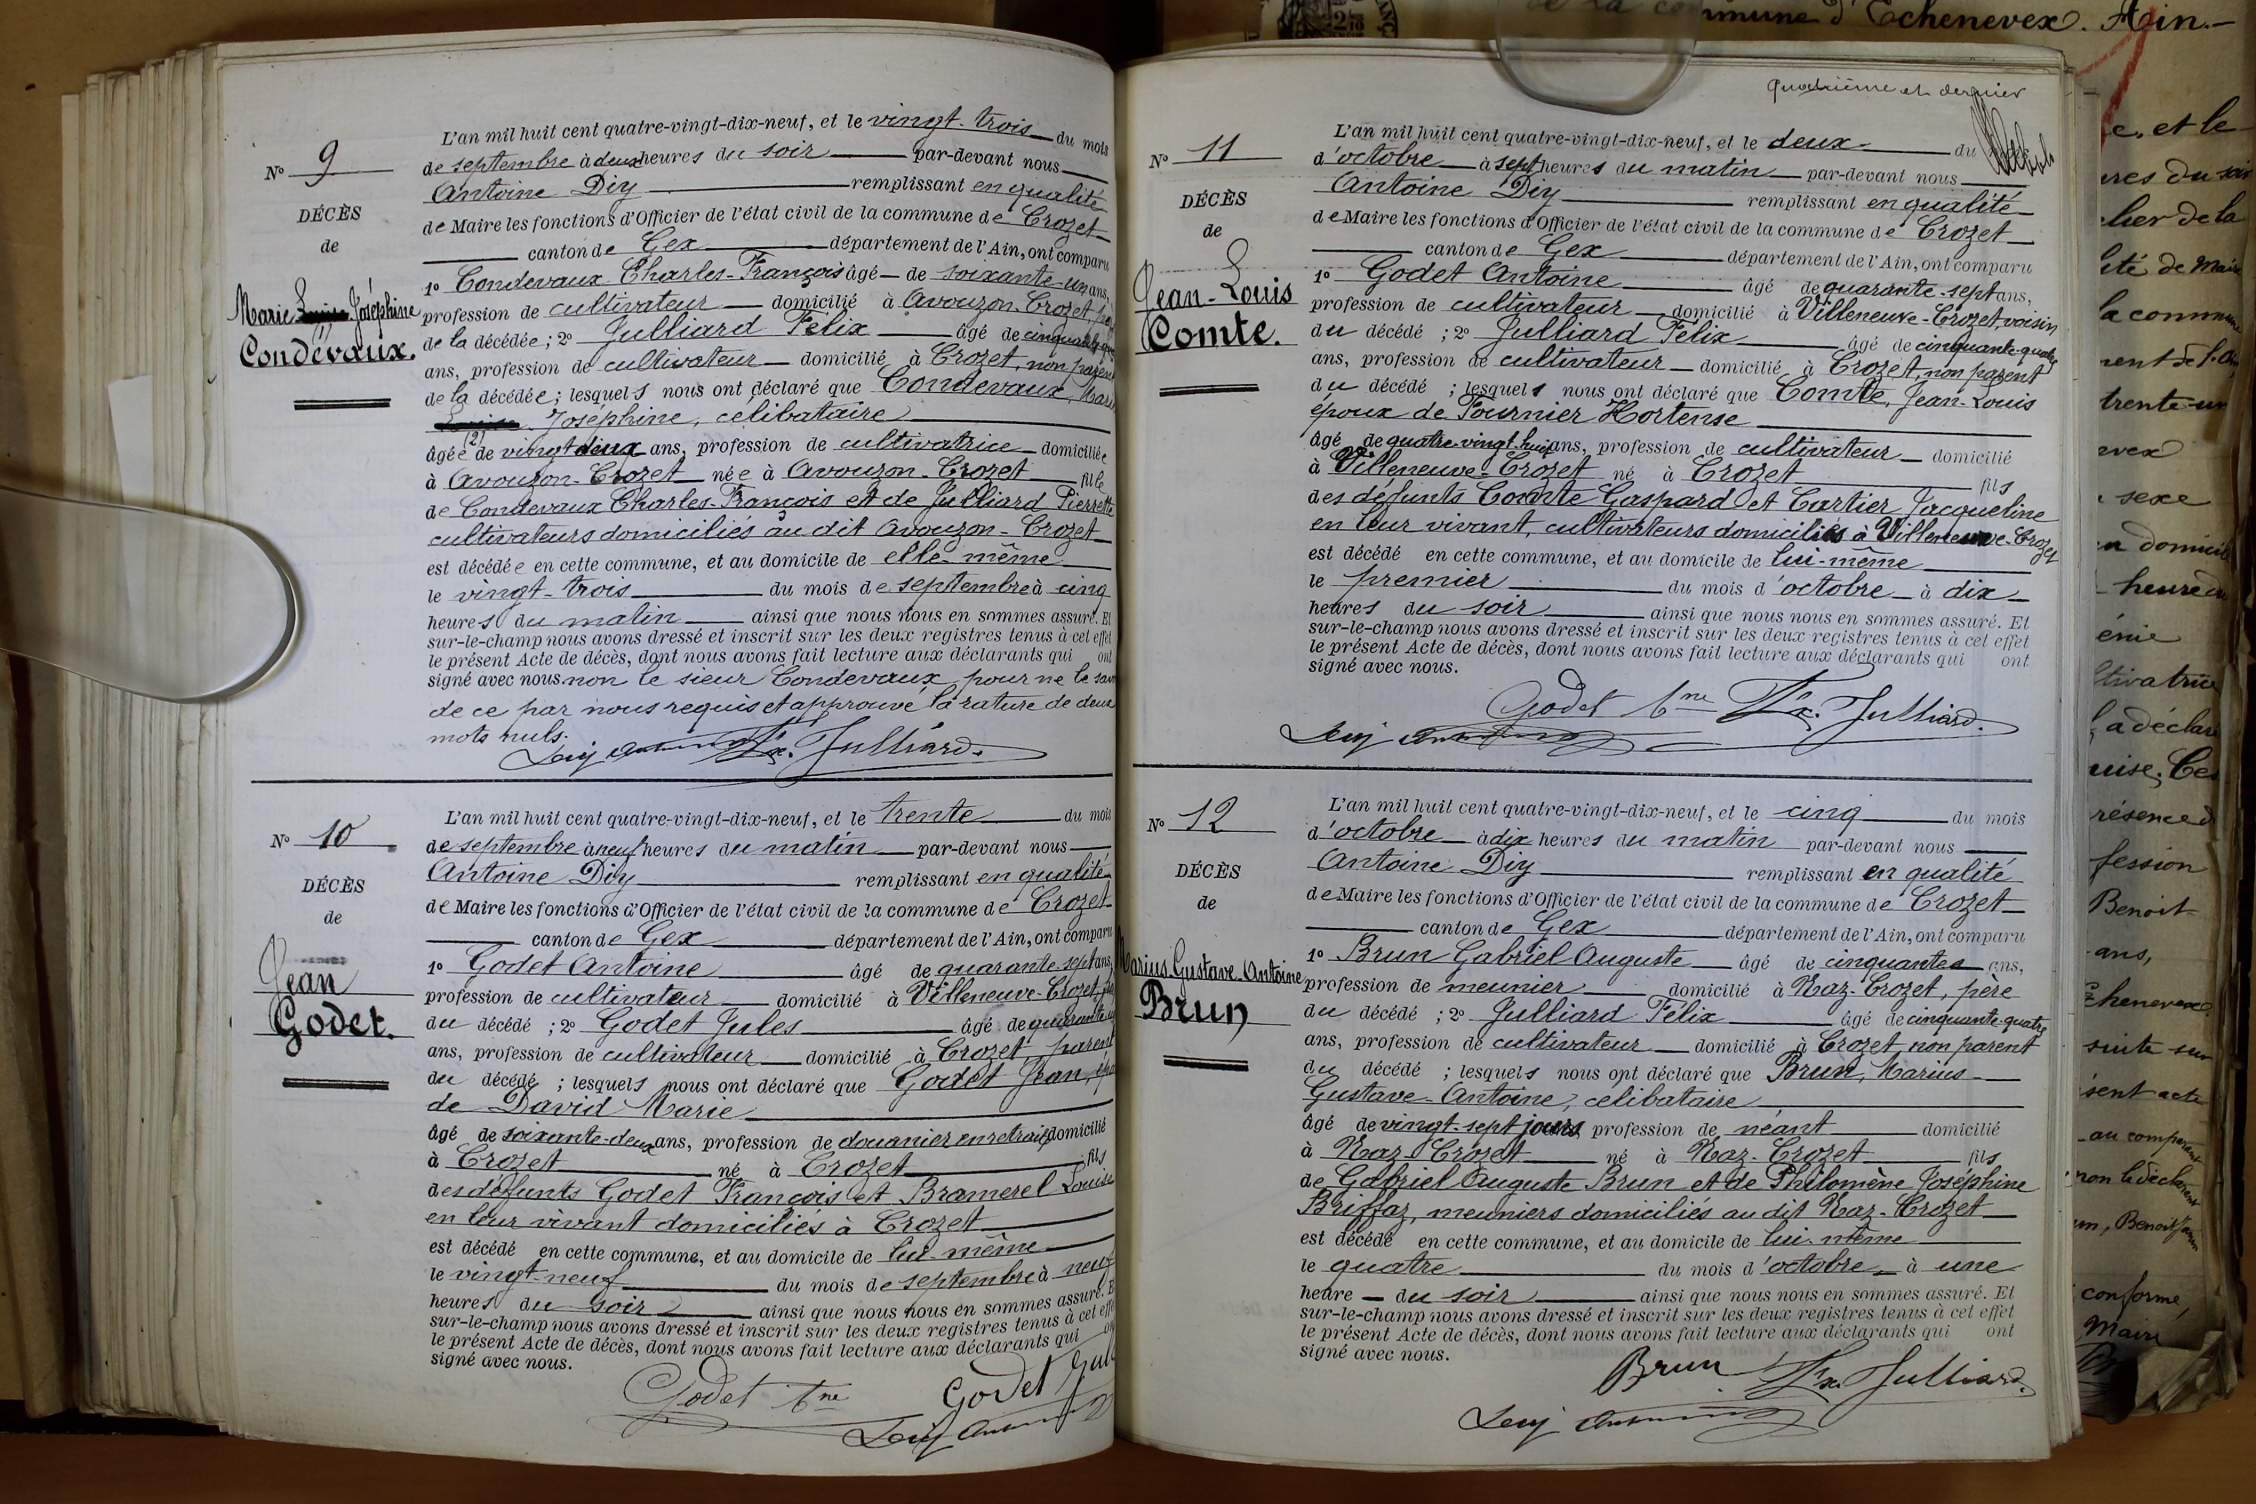 N° 9
DÉCÈS
de
Marie Joséphine
Condevaux.
L'an mil huit cent quatre-vingt-dix-neuf, et le vingt-trois du mois
de septembre à deux heures du soir par-devant nous
Antoine Diy remplissant en qualité
de Maire les fonctions d'Officier de l'état civil de la commune de Crozet
canton de Gex département de l'Ain, ont comparu
1° Condevaux Charles-François âgé de soixante-un ans,
profession de cultivateur domicilié à Avouzon-Crozet,
de la décédée; 2° Julliard Félix âgé de
ans, profession de cultivateur domicilié à Crozet, non parent
de la décédée; lesquels nous ont déclaré que Condevaux, Marie
Joséphine, célibataire
âgée de vingt deux ans, profession de cultivatrice domiciliée
à Avouzon-Crozet née à Avouzon-Crozet fille
de Condevaux Charles-François et de Julliard Pierrette
cultivateurs domiciliés au dit Avouzon-Crozet
est décédée en cette commune, et au domicile de elle-même
le vingt-trois du mois de septembre à cinq
heures du matin ainsi que nous nous en sommes assuré. Et
sur-le-champ nous avons dressé et inscrit sur les deux registres tenus à cet effet
le présent Acte de décès, dont nous avons fait lecture aux déclarants qui ont
signé avec nous non le sieur Condevaux pour ne le savoir
de ce par nous requis et approuvé la rature de deux
mots nuls.
Fx. Julliard.
N° 10
DÉCÈS
de
Jean
Godet.
L'an mil huit cent quatre-vingt-dix-neuf, et le trente du mois
de septembre à neuf heures du matin par-devant nous
Antoine Diy remplissant en qualité
de Maire les fonctions d'Officier de l'état civil de la commune de Crozet
canton de Gex département de l'Ain, ont comparu
1° Godet Antoine âgé de quarante-sept ans,
profession de cultivateur domicilié à Villeneuve-Crozet,
du décédé; 2° Godet Jules âgé de
ans, profession de cultivateur domicilié à Crozet, parent
du décédé; lesquels nous ont déclaré que Godet Jean,
de David Marie
âgé de soixante-deux ans, profession de douanier en retraite domicilié
à Crozet né à Crozet fils
des défunts Godet François et Bramerel Louise
en leur vivant domiciliés à Crozet
est décédé en cette commune, et au domicile de lui-même
le vingt-neuf du mois de septembre à neuf
heures du soir ainsi que nous nous en sommes assuré. Et
sur-le-champ nous avons dressé et inscrit sur les deux registres tenus à cet effet
le présent Acte de décès, dont nous avons fait lecture aux déclarants qui
signé avec nous.
Godet Ane Godet
quatrième et dernier
N° 11
DÉCÈS
de
Jean-Louis
Comte.
L'an mil huit cent quatre-vingt-dix-neuf, et le deux du
d'octobre à sept heures du matin par-devant nous
Antoine Diy remplissant en qualité
de Maire les fonctions d'Officier de l'état civil de la commune de Crozet
canton de Gex département de l'Ain, ont comparu
1° Godet Antoine âgé de quarante-sept ans,
profession de cultivateur domicilié à Villeneuve-Crozet, voisin
du décédé; 2° Julliard Félix âgé de cinquante-quatre
ans, profession de cultivateur domicilié à Crozet, non parent
du décédé; lesquels nous ont déclaré que Comte, Jean-Louis
époux de Fournier Hortense
âgé de quatre-vingt-huit ans, profession de cultivateur domicilié
à Villeneuve-Crozet né à Crozet fils
des défunts Comte Gaspard et Cartier Jacqueline
en leur vivant, cultivateurs domiciliés à Villeneuve-Crozet
est décédé en cette commune, et au domicile de lui-même
le premier du mois d'octobre à dix
heures du soir ainsi que nous nous en sommes assuré. Et
sur-le-champ nous avons dressé et inscrit sur les deux registres tenus à cet effet
le présent Acte de décès, dont nous avons fait lecture aux déclarants qui ont
signé avec nous.
Godet Ane Fx. Julliard.
N° 12
DÉCÈS
de
Marius Gustave Antoine
Brun
L'an mil huit cent quatre-vingt-dix-neuf, et le cinq du mois
d'octobre à dix heures du matin par-devant nous
Antoine Diy remplissant en qualité
de Maire les fonctions d'Officier de l'état civil de la commune de Crozet
canton de Gex département de l'Ain, ont comparu
1° Brun Gabriel Auguste âgé de cinquante ans,
profession de meunier domicilié à Naz-Crozet, père
du décédé; 2° Julliard Félix âgé de cinquante-quatre
ans, profession de cultivateur domicilié à Crozet non parent
du décédé; lesquels nous ont déclaré que Brun, Marius
Gustave-Antoine, célibataire
âgé de vingt-sept jours, profession de néant domicilié
à Naz-Crozet né à Naz-Crozet fils
de Gabriel Auguste Brun et de Philomène Joséphine
Briffaz, meuniers domiciliés au dit Naz-Crozet
est décédé en cette commune, et au domicile de lui-même
le quatre du mois d'octobre à une
heure du soir ainsi que nous nous en sommes assuré. Et
sur-le-champ nous avons dressé et inscrit sur les deux registres tenus à cet effet
le présent Acte de décès, dont nous avons fait lecture aux déclarants qui ont
signé avec nous.
Brun Fx. Julliard.
de la commune d'Echenevex. Ain.
e, et le
res du soir
de la
ité de Maire
la commune
trente-un
sexe
domicile
heure du
énie
a déclaré
résence d
fession
Benoit
ans,
Echenevex
suite sur
sent acte
conforme,
Maire